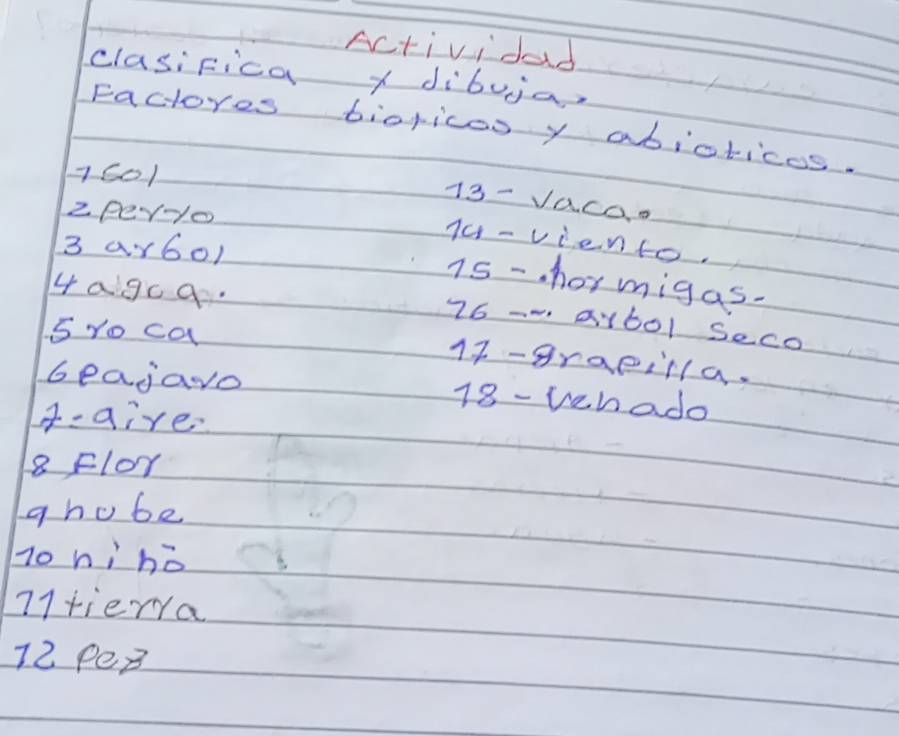 Actividad
clasifica y dibuja,
Factores bioticos y abioticos.
1 sol
2 perro
3 arbol
4 agua.
5 roca
6 pajaro
7-aire.
8 Flor
9 nube
10 niño
11 tierra
12 pez
13 - vaca.
14 - viento.
15 - hormigas.
16 - arbol seco
17 - grapilla.
18 - venado